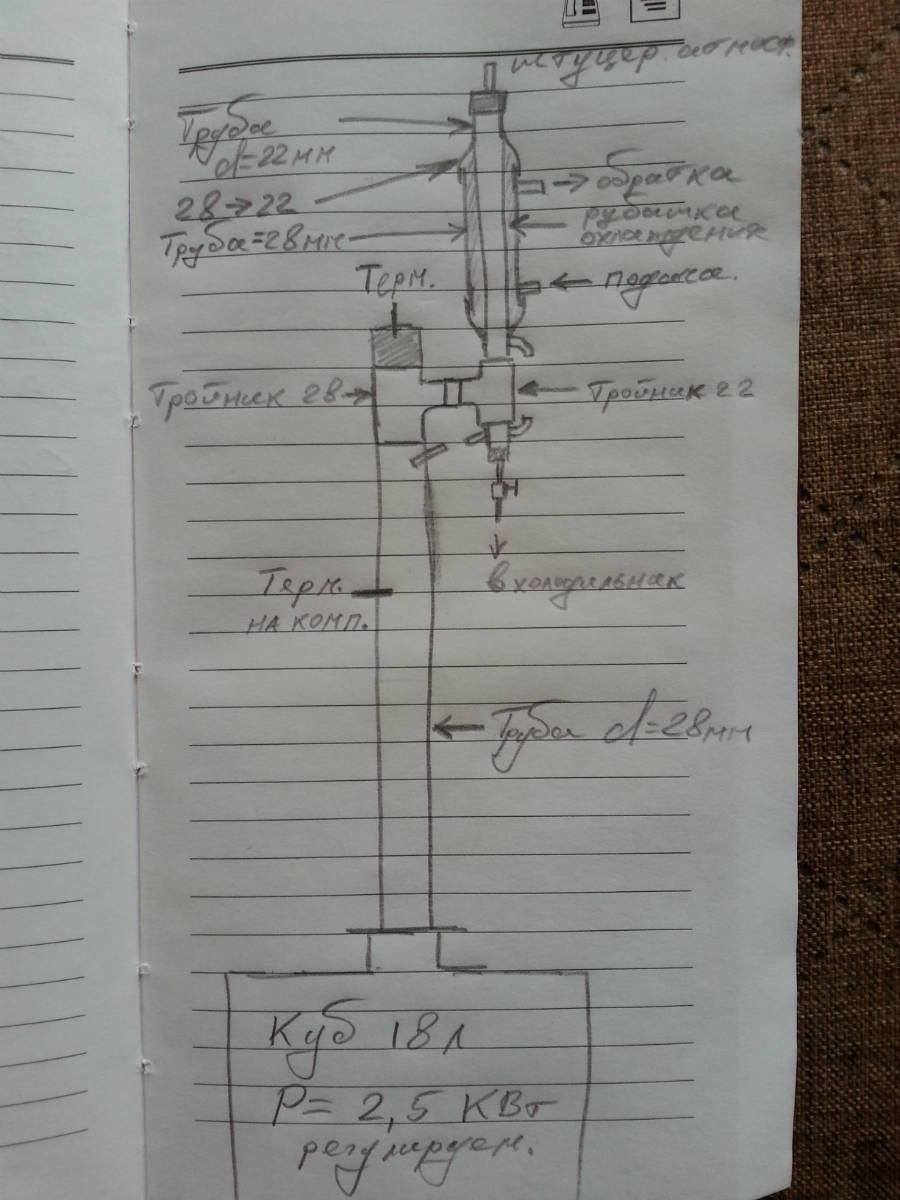 штуцер. атмосф.
Труба
d=22мм
28→22
Труба=28мм
→ обратка
рубашка
охлаждения
подача.
Терм.
Тройник 28
Тройник 22
Терм.
на комп.
в холодильник
Труба d=28мм
Куб 18л
P= 2,5 КВт
регулируем.